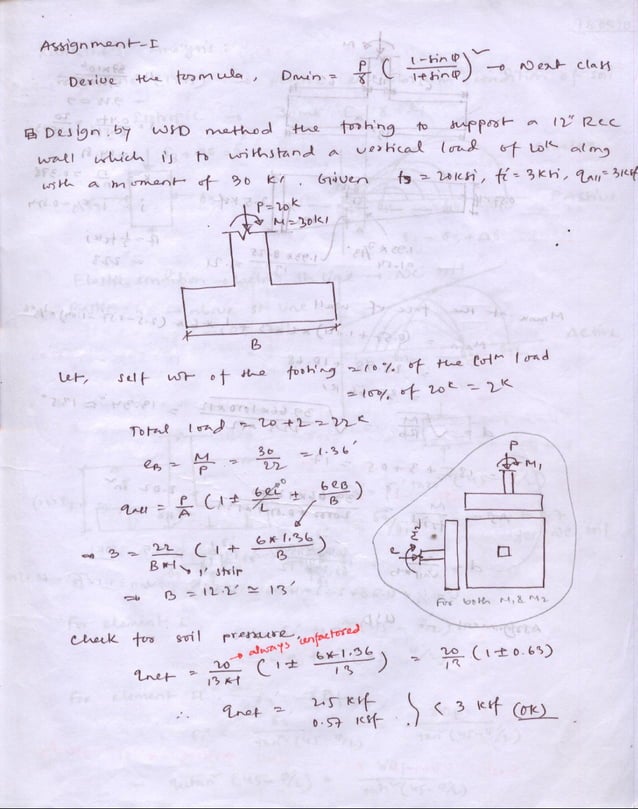 Assignment-I
Derive the formula, Dmin = P/γ ( 1-sinφ / 1+sinφ )² → Next class
Design by WSD method the footing to support a 12" RCC
wall which is to withstand a vertical load of 20k along
with a moment of 30 K'. Given fs = 20ksi, fc' = 3ksi, qall = 3ksf
P=20K
M=30K'
B
Let, self wt of the footing = 10% of the colm load
= 10% of 20k = 2k
Total load = 20+2 = 22k
eB = M/P = 30/22 = 1.36'
qall = P/A (1 ± 6eL/L ± 6eB/B)
0
⇒ 3 = 22/B*1 (1 + 6*1.36/B)
1' strip
⇒ B = 12.2' ≃ 13'
P
M1
M2
For both M1 & M2
Check for soil pressure
always unfactored
qnet = 20/13*1 (1 ± 6*1.36/13) = 20/13 (1 ± 0.63)
∴ qnet = 2.5 ksf
0.57 ksf } < 3 ksf (OK)